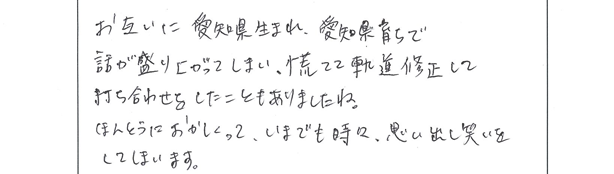 お互いに愛知県生まれ、愛知県育ちで
話が盛り上がってしまい、慌てて軌道修正して
打ち合わせをしたこともありましたね。
ほんとうにおかしくって、いまでも時々、思い出し笑いを
してしまいます。